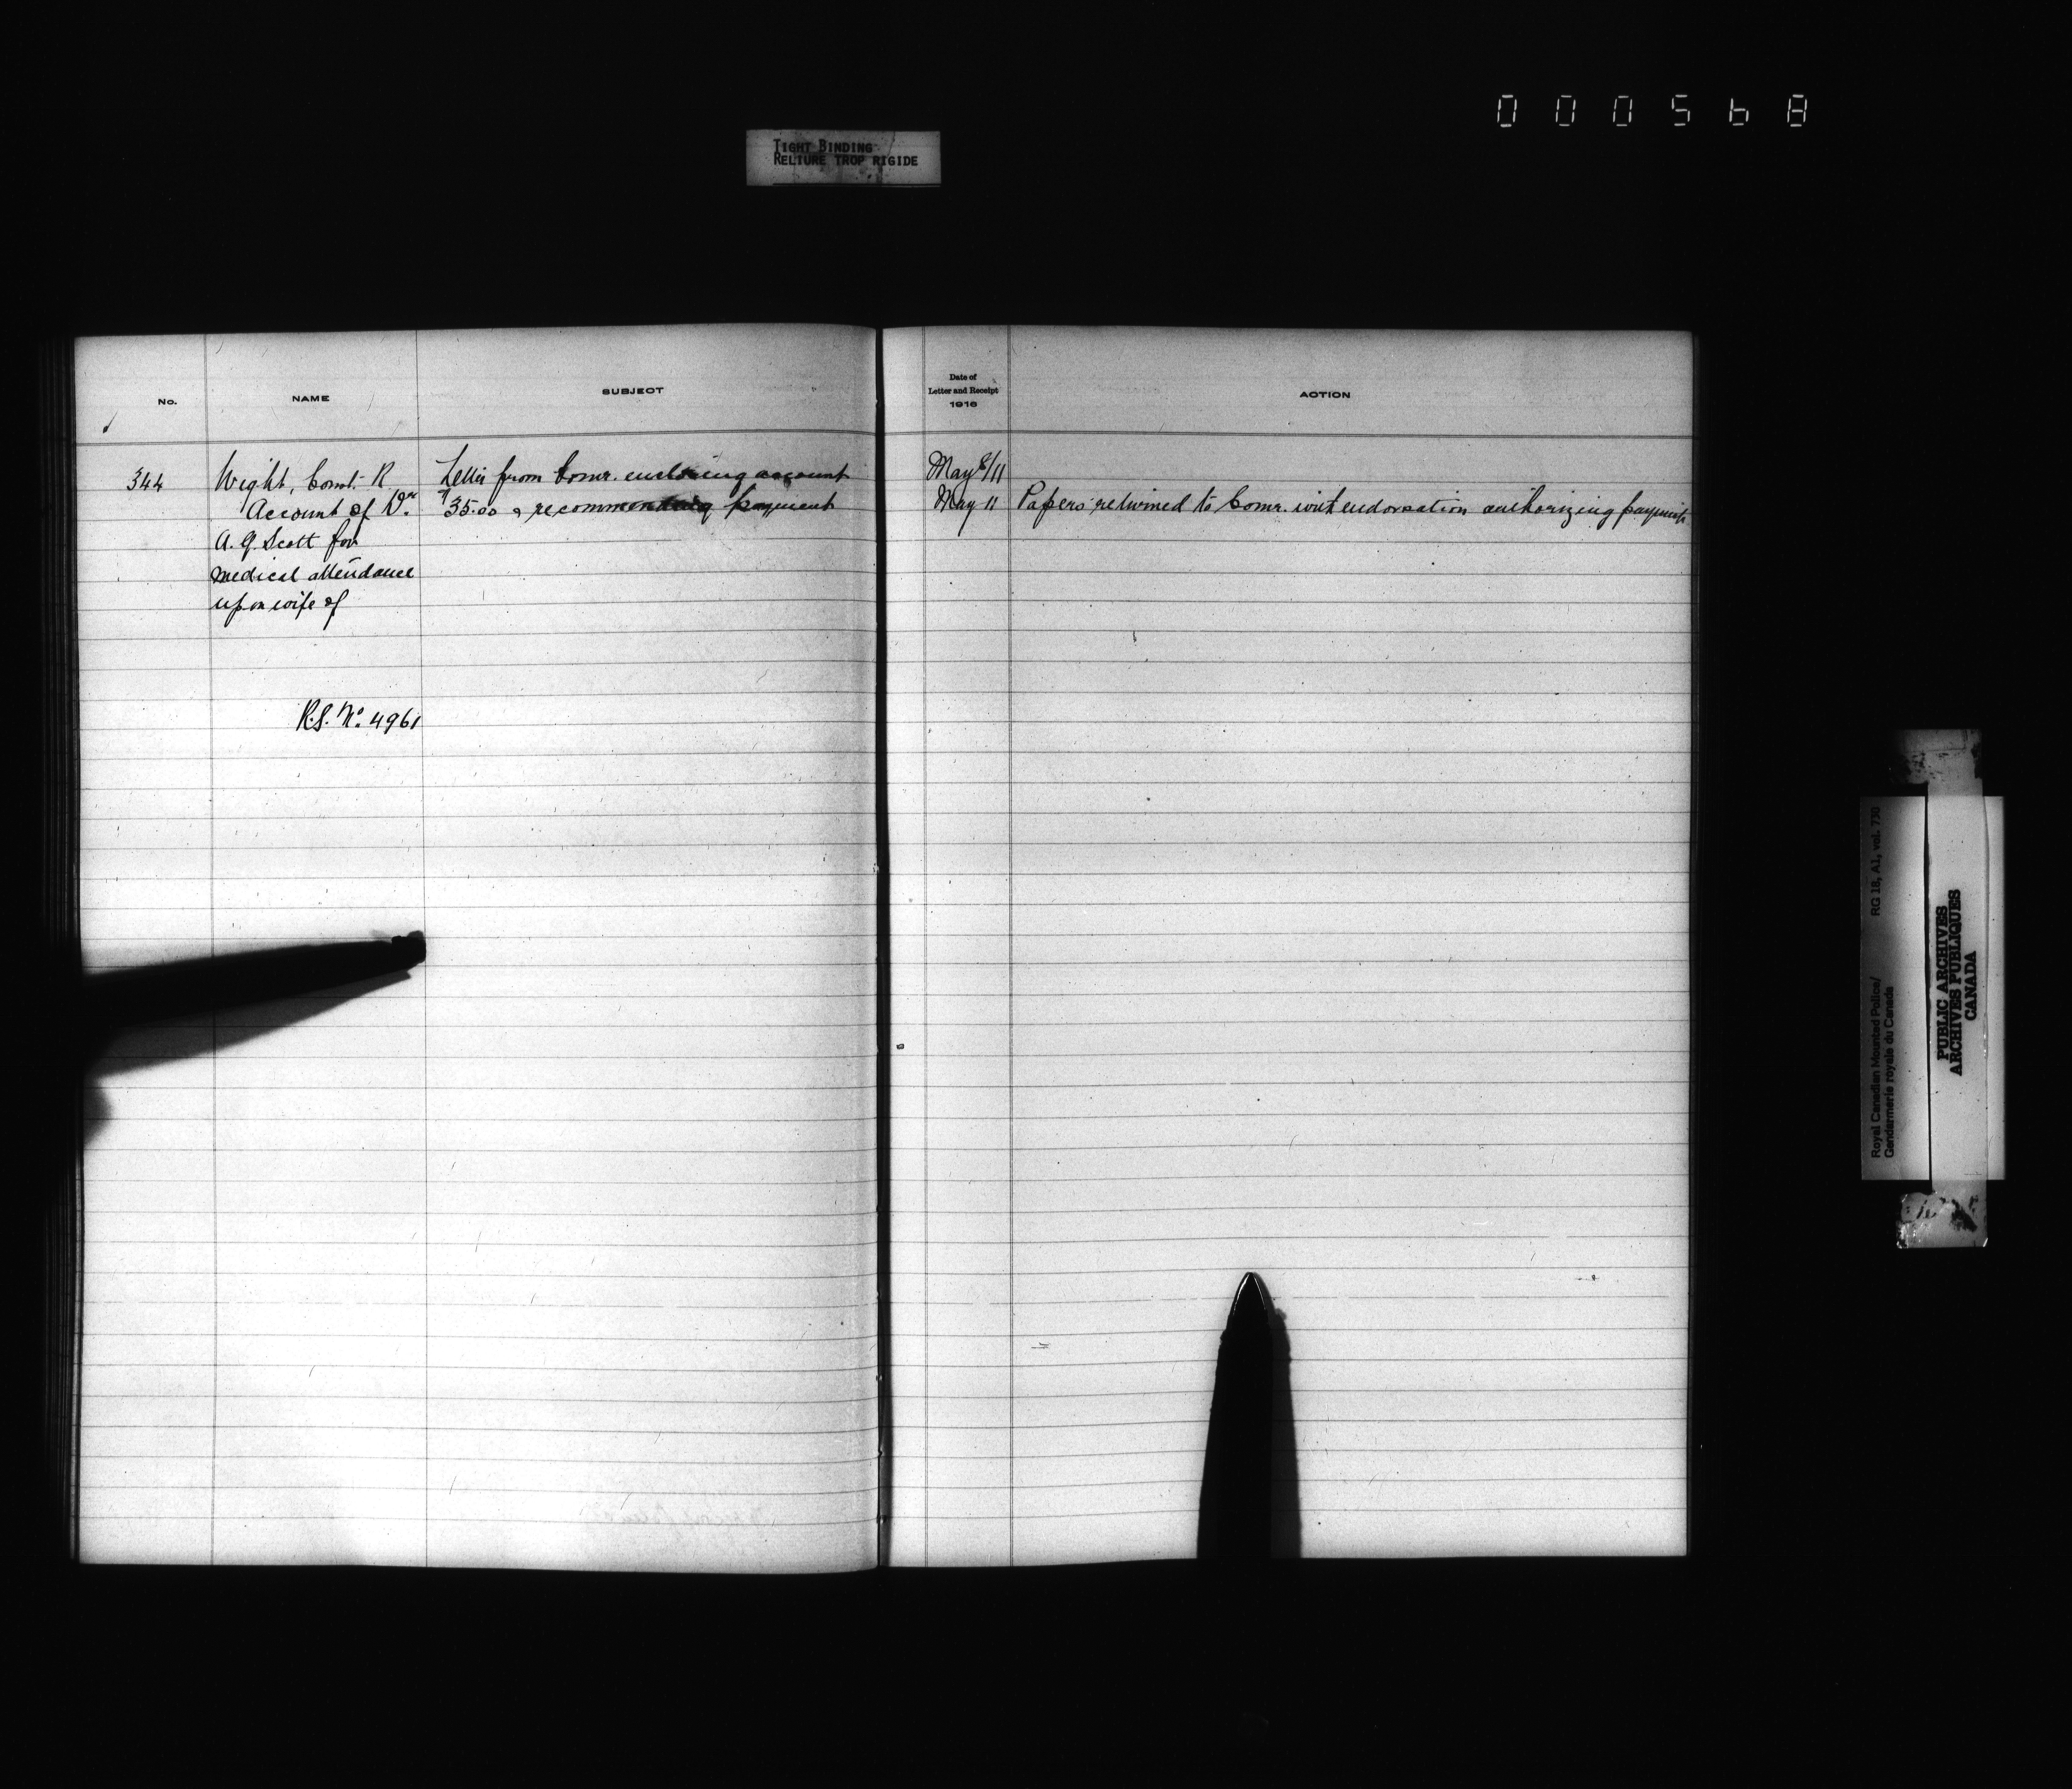 000568
TIGHT BINDING
RELIURE TROP RIGIDE
No.
NAME
SUBJECT
Date of
Letter and Receipt
1916
ACTION
344
Wight, Const. R.
Account of Dr.
A. G. Scott for
medical attendance
upon wife of
R.S. No. 4961
Letter from Comr. enclosing account
35.00 & recommending payment
May 8/11
May 11
Papers returned to Comr. with endorsation authorizing payment
Royal Canadian Mounted Police/
Gendarmerie royale du Canada
RG 18, A1, vol. 730
PUBLIC ARCHIVES
ARCHIVES PUBLIQUES
CANADA